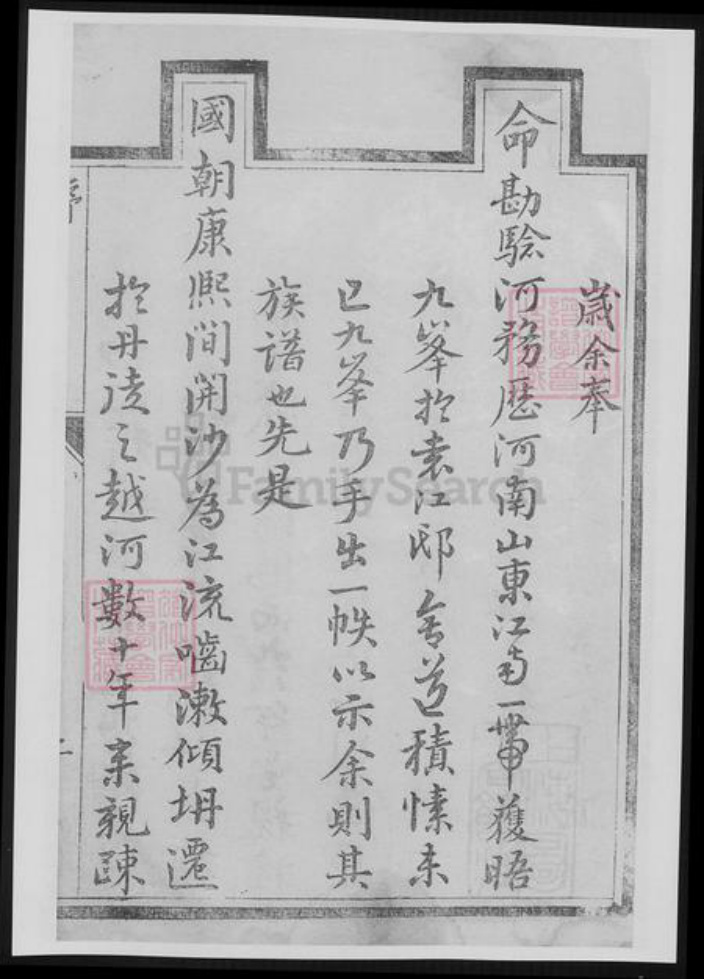 歲余奉
命勘驗河務歷河南山東江南一帶獲晤
九峯於袁江邸舍道積愫未
已九峯乃手出一帙以示余則其
族譜也先是
國朝康熙間開沙為江流嚙漱傾坍遷
於丹徒之越河數十年來親疎
序
二
FamilySearch